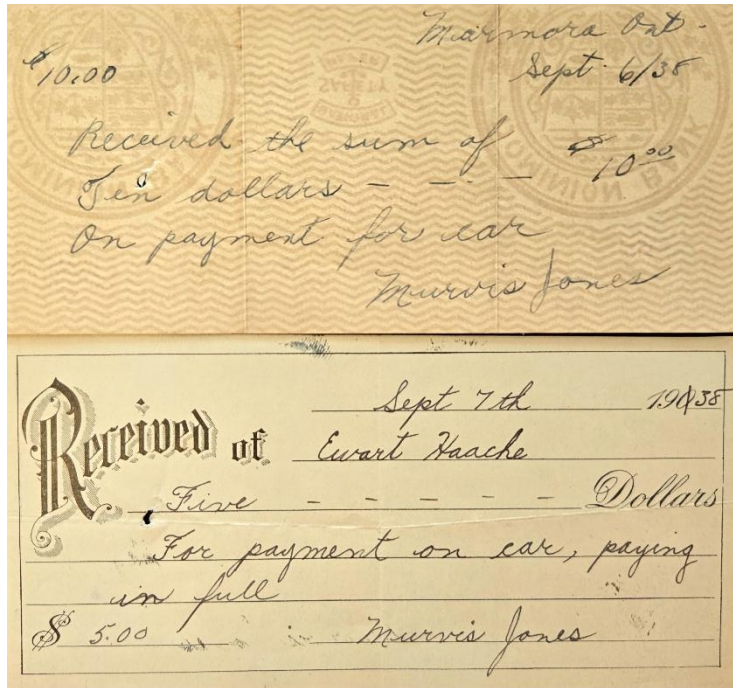 Marmora Ont.
$10.00
Sept. 6/38
Received the sum of
Ten dollars - - - - $10.00
On payment for car
Murvis Jones
Sept 7th 1938
Received of Ewart Haache
Five - - - - - - Dollars
For payment on car, paying
in full
$ 5.00 Murvis Jones